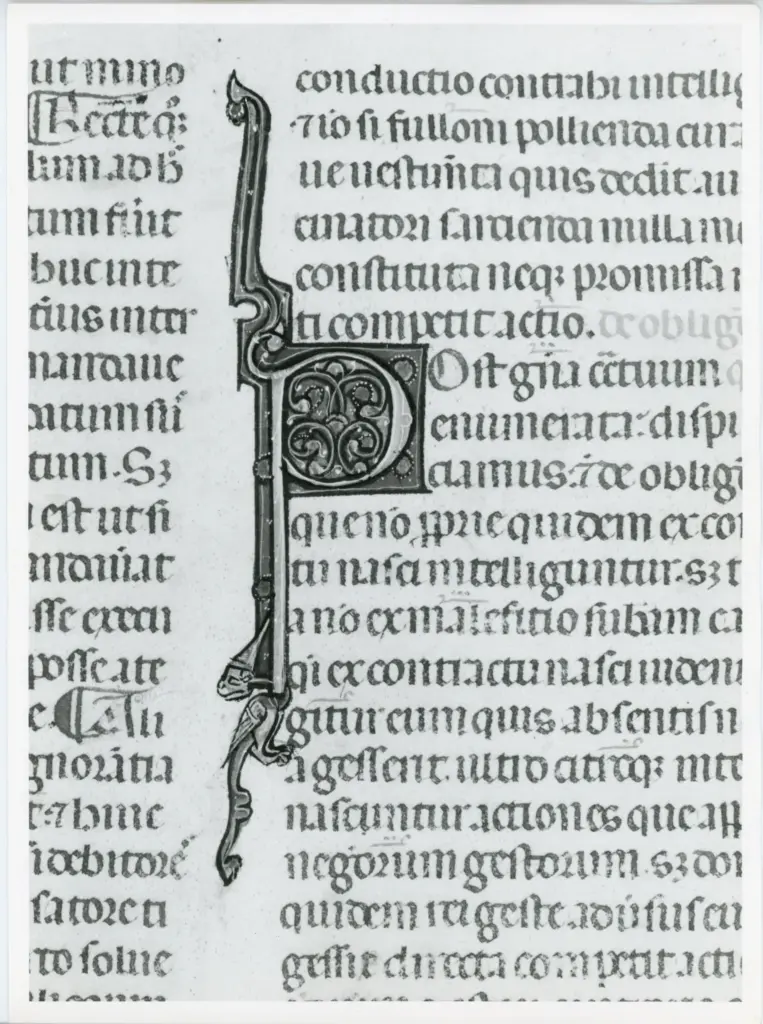 ut mino
Recte q̃
lum ad h̃
tum fiũt
huc inte
tius inter
mandaue
datum sũ
tum. Sʒ
est ut si
mandauat
sse execu
posse a te
e. Cau
gnorãtia
t ⁊ huic
si debitorẽ
satore ti
to solue
conductio contrahi intellig
⁊ io si fulloni pollienda cur
ue uestim̃ta quis dedit au
cinatori sarcienda nulla m
constituta neqʒ promissa
ti competit actio. de oblig
Post gña c̃tuum
enumerata: dispi
ciamus: ⁊ de oblig
que nõ ꝓprie quidem ex co
tu nasci intelliguntur. sʒ t
a nõ ex malefitio subam ca
qi ex contractu nasci uiden
gitur cum quis absentis n
a gesserit ultro citroqʒ inte
nascuntur actiones que app
negotiorum gestorum. sʒ do
quidem rei geste aduersus eu
gessit directa competit acti